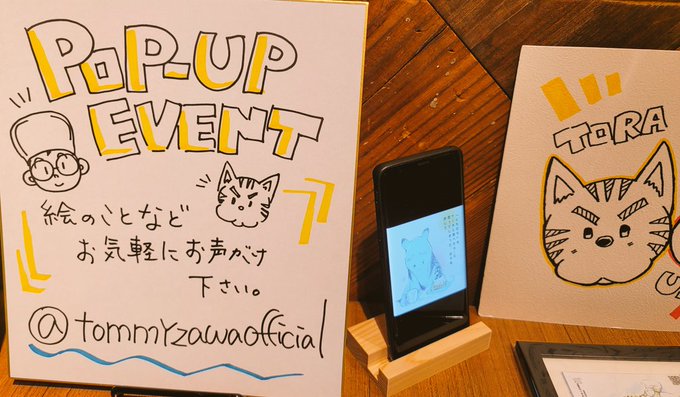 POP-UP
EVENT
絵のことなど
お気軽にお声がけ
下さい。
@tommyzawaofficial
TORA